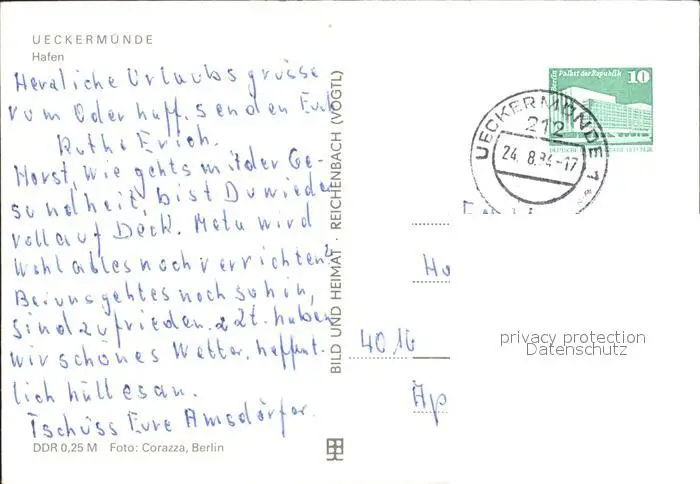 UECKERMÜNDE
Hafen
Herzliche Urlaubsgrüsse
vom Oderhaff. senden Euch
Ruth & Erich.
Horst, wie gehts mit der Ge-
sundheit, bist Du wieder
voll auf Deck. Meta wird
wohl alles noch verrichten?
Bei uns geht es noch so hin,
sind zufrieden. z Zt. haben
wir schönes Wetter, hoffent-
lich hält es an.
Tschüss Eure Amsdörfer.
DDR 0,25 M Foto: Corazza, Berlin
BILD UND HEIMAT · REICHENBACH (VOGTL)
Berlin Palast der Republik 10
UECKERMÜNDE 1
212
24.8.84-17
4016
privacy protection
Datenschutz